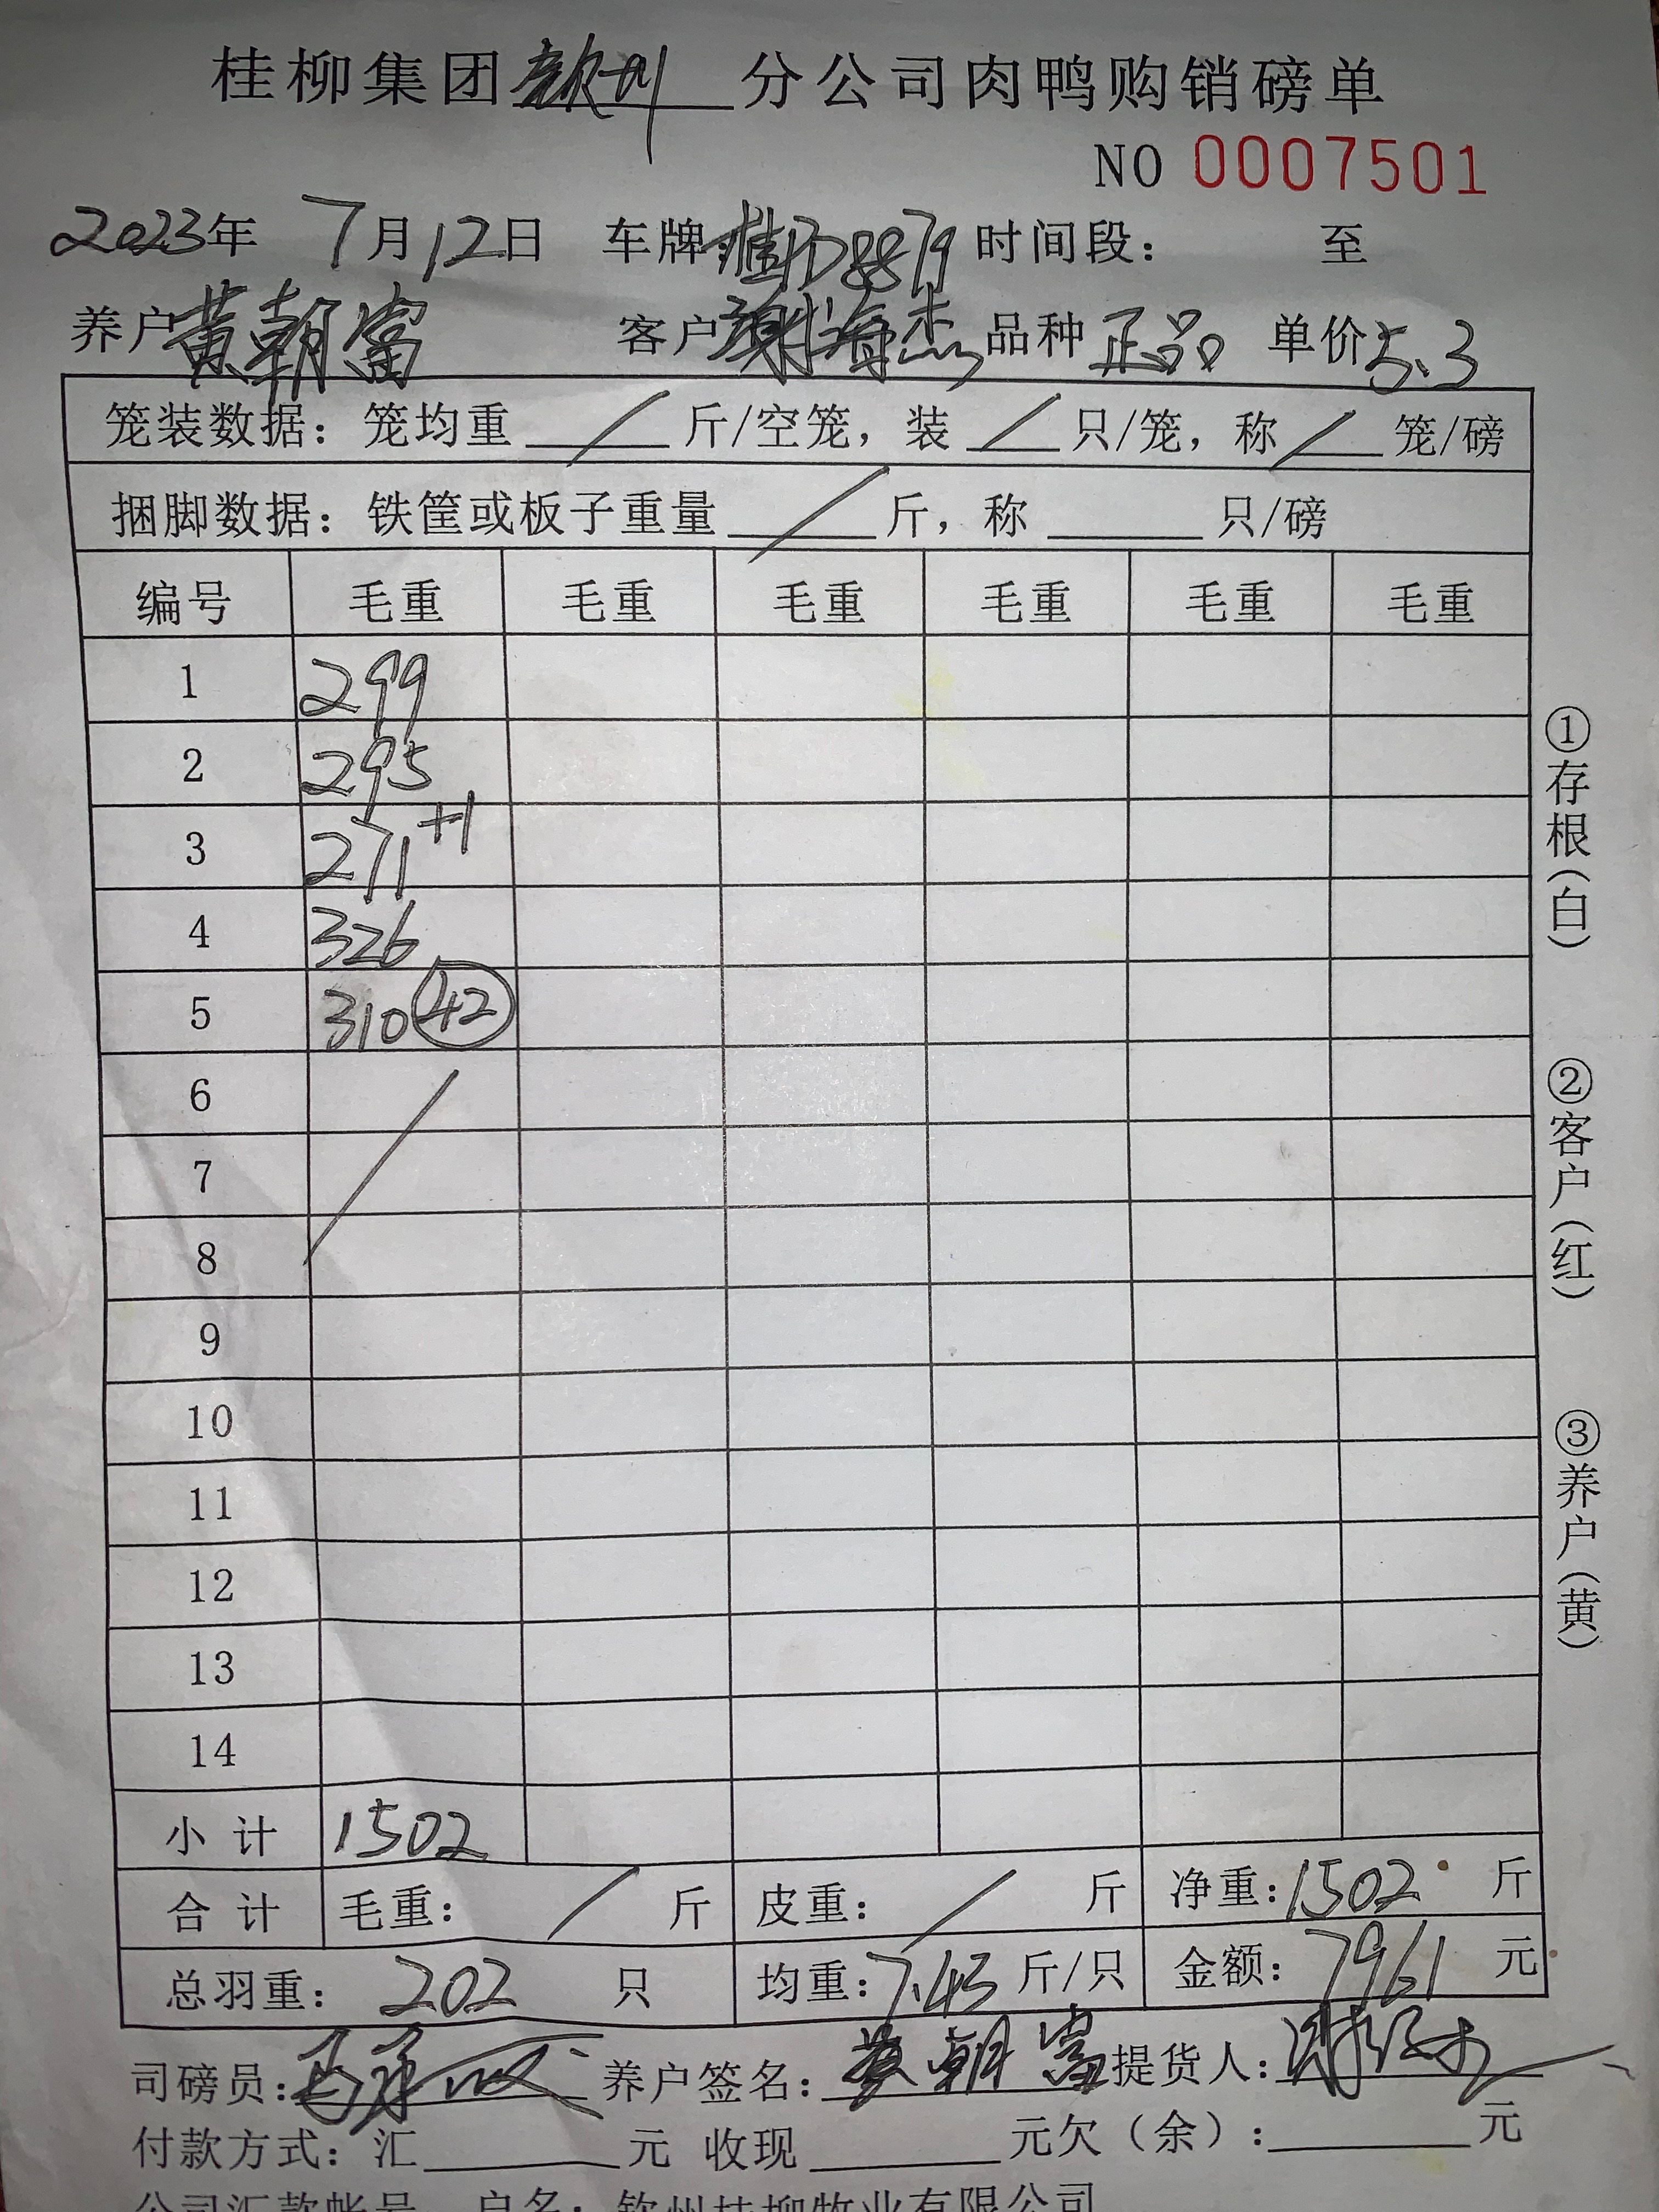 桂柳集团钦州分公司肉鸭购销磅单
NO 0007501
2023年 7月12日 车牌桂D8879 时间段: 至
养户黄朝富 客户谢海杰 品种正品 单价5.3
笼装数据: 笼均重 / 斤/空笼, 装 / 只/笼, 称 / 笼/磅
捆脚数据: 铁筐或板子重量 / 斤, 称 只/磅
编号 毛重 毛重 毛重 毛重 毛重 毛重
1 299
2 295
3 271+1
4 326
5 310 42
6
7
8
9
10
11
12
13
14
小计 1502
合计 毛重: / 斤 皮重: / 斤 净重: 1502 斤
总羽重: 202 只 均重: 7.43 斤/只 金额: 7961 元
司磅员: 养户签名: 黄朝富 提货人:
付款方式: 汇 元 收现 元欠(余): 元
公司汇款帐号 户名: 钦州桂柳牧业有限公司
①存根(白)
②客户(红)
③养户(黄)